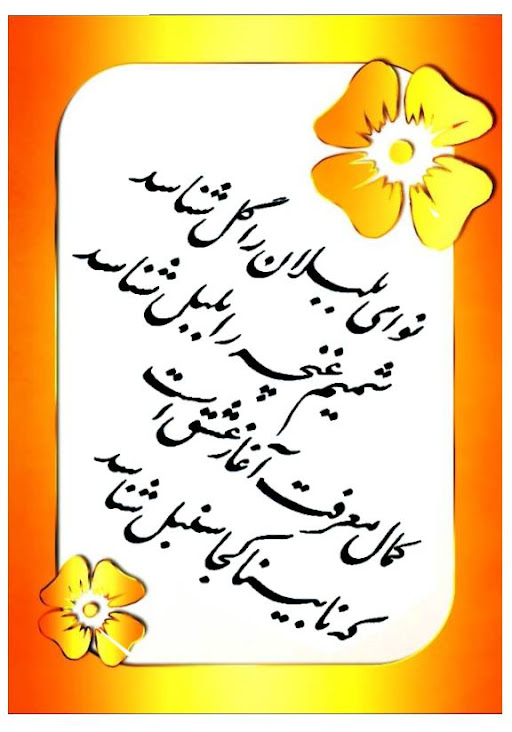 نوای بلبلان را گل شناسد
شمیم غنچه را بلبل شناسد
کمال معرفت آغاز عشق است
که نابینا کجا سنبل شناسد